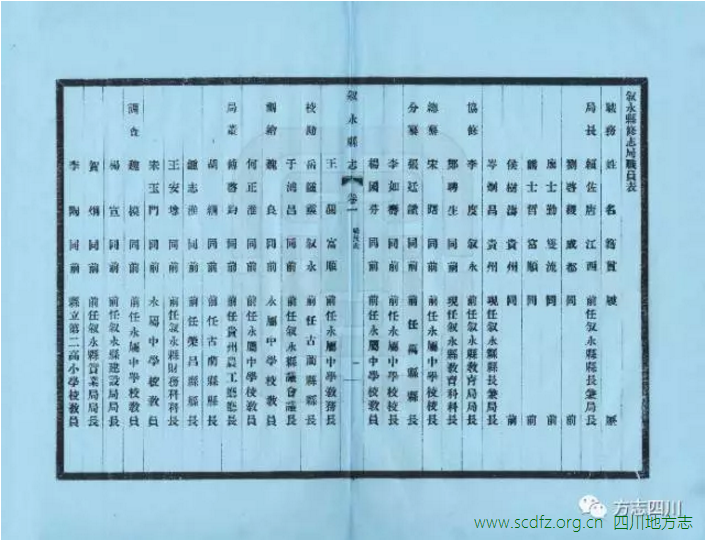 叙永縣修志局職員表
職務 姓名 籍貫 履歷
局長 賴佐唐 江西 前任叙永縣縣長兼局長
劉啓綬 成都 同前
唐士勤 雙流 同前
戴士哲 富順 同前
侯樹濤 貴州 同前
岑烱昌 貴州 現任叙永縣縣長兼局長
協修 李度 叙永 前任叙永縣教育局局長
鄭聘生 同前 現任叙永縣教育科科長
總纂 宋曙 同前 前任永屬中學校校長
分纂 張廷 同前 前任萬縣縣長
李如 同前 前任永屬中學校校長
楊國芬 同前 前任永屬中學校教員
叙永縣志 卷一 職員表 一
王 富順 前任永屬中學教務長
校勘 岳 叙永 前任古藺縣縣長
于鴻昌 同前 前任叙永縣議會議長
測繪 魏良 同前 永屬中學校教員
何正淮 同前 前任永屬中學校教員
局董 傅啓鈞 同前 前任貴州農工廳廳長
胡 同前 前任古藺縣縣長
鍾志淮 同前 前任榮昌縣縣長
王安 同前 前任叙永縣財務科科長
宋玉門 同前 永屬中學校教員
調查 魏 同前 前任永屬中學校教員
楊宣 同前 前任叙永縣建設局局長
賀 同前 前任叙永縣實業局局長
李陶 同前 縣立第二高小學校教員
方志四川
www.scdfz.org.cn 四川地方志